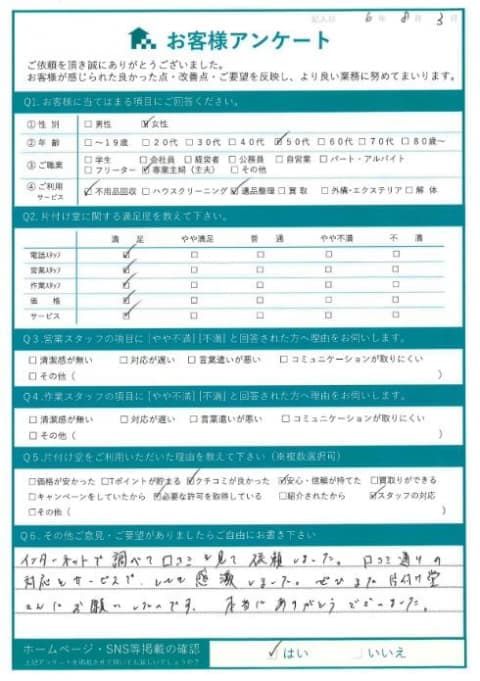 記入日 6年 8月 3日
お客様アンケート
ご依頼を頂き誠にありがとうございました。
お客様が感じられた良かった点・改善点・ご要望を反映し、より良い業務に努めてまいります。
Q1. お客様に当てはまる項目にご回答ください。
①性 別 □男性 ☑女性
②年 齢 □～19歳 □20代 □30代 □40代 ☑50代 □60代 □70代 □80歳～
③ご職業 □学生 □会社員 □経営者 □公務員 □自営業 □パート・アルバイト
□フリーター ☑専業主婦（主夫） □その他
④ご利用サービス ☑不用品回収 □ハウスクリーニング ☑遺品整理 □買取 □外構・エクステリア □解体
Q2. 片付け堂に関する満足度を教えて下さい。
満足 やや満足 普通 やや不満 不満
電話スタッフ ☑ □ □ □ □
営業スタッフ ☑ □ □ □ □
作業スタッフ ☑ □ □ □ □
価格 ☑ □ □ □ □
サービス ☑ □ □ □ □
Q3. 営業スタッフの項目に[やや不満][不満]と回答された方へ理由をお伺いします。
□清潔感が無い □対応が遅い □言葉遣いが悪い □コミュニケーションが取りにくい
□その他（ ）
Q4. 作業スタッフの項目に[やや不満][不満]と回答された方へ理由をお伺いします。
□清潔感が無い □対応が遅い □言葉遣いが悪い □コミュニケーションが取りにくい
□その他（ ）
Q5. 片付け堂をご利用いただいた理由を教えて下さい（※複数選択可）
□価格が安かった □Tポイントが貯まる ☑クチコミが良かった ☑安心・信頼が持てた □買取りができる
□キャンペーンをしていたから ☑必要な許可を取得している □紹介されたから ☑スタッフの対応
□その他（ ）
Q6. その他ご意見・ご要望がありましたらご自由にお書き下さい
インターネットで調べて口コミを見て依頼しました。口コミ通りの
対応とサービスで、とても感激しました。ぜひまた片付け堂
さんにお願いしたいです。本当にありがとうございました。
ホームページ・SNS等掲載の確認
上記アンケートを掲載させて頂いてもよろしいでしょうか？
☑はい □いいえ